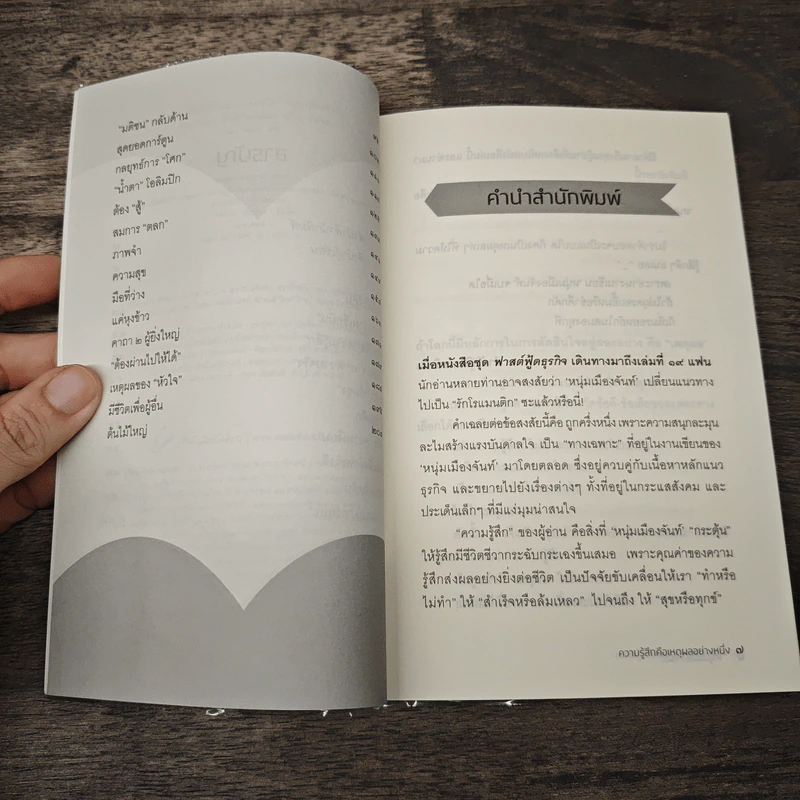 "มติชน" กลับด้าน
สุดยอดการ์ตูน
กลยุทธ์การ "โศก"
"น้ำตา" โอลิมปิก
ต้อง "สู้"
สมการ "ตลก"
ภาพจำ
ความสุข
มือที่ว่าง
แค่หุงข้าว
คาถา ๒ ผู้ยิ่งใหญ่
"ต้องผ่านไปให้ได้"
เหตุผลของ "หัวใจ"
มีชีวิตเพื่อผู้อื่น
ต้นไม้ใหญ่
คำนำสำนักพิมพ์
เมื่อหนังสือชุด ฟาสต์ฟู้ดธุรกิจ เดินทางมาถึงเล่มที่ ๑๙ แฟน
นักอ่านหลายท่านอาจสงสัยว่า 'หนุ่มเมืองจันท์' เปลี่ยนแนวทาง
ไปเป็น "รักโรแมนติก" ซะแล้วหรือนี่!
คำเฉลยต่อข้อสงสัยนี้คือ ถูกครึ่งหนึ่ง เพราะความสนุกละมุน
ละไมสร้างแรงบันดาลใจ เป็น "ทางเฉพาะ" ที่อยู่ในงานเขียนของ
'หนุ่มเมืองจันท์' มาโดยตลอด ซึ่งอยู่ควบคู่กับเนื้อหาหลักแนว
ธุรกิจ และขยายไปยังเรื่องต่างๆ ทั้งที่อยู่ในกระแสสังคม และ
ประเด็นเล็กๆ ที่มีแง่มุมน่าสนใจ
"ความรู้สึก" ของผู้อ่าน คือสิ่งที่ 'หนุ่มเมืองจันท์' "กระตุ้น"
ให้รู้สึกมีชีวิตชีวากระฉับกระเฉงขึ้นเสมอ เพราะคุณค่าของความ
รู้สึกส่งผลอย่างยิ่งต่อชีวิต เป็นปัจจัยขับเคลื่อนให้เรา "ทำหรือ
ไม่ทำ" ให้ "สำเร็จหรือล้มเหลว" ไปจนถึง ให้ "สุขหรือทุกข์"
ความรู้สึกคือเหตุผลอย่างหนึ่ง ๗